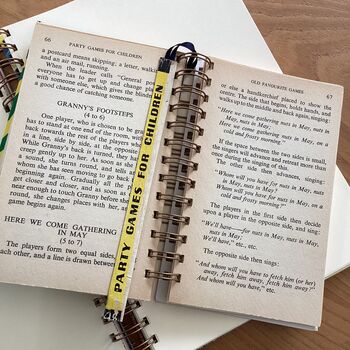 66 PARTY GAMES FOR CHILDREN
a postcard means skipping; a letter, walk
and an air mail, running.
When the leader calls "General post
everyone has to get up and change pl
which of course, gives the blindfold pl
a good chance of catching someone.
GRANNY'S FOOTSTEPS
(4 to 6)
One player, who is chosen to be gra
has to stand at one end of the room, with
back towards the rest of the players wh
in a line, side by side, at the opposite
While Granny's back is turned, they ha
creep gently up to her. And so as she
a sound, she turns round, and tells
whom she has seen moving to go back
beginning again. Gradually all the play
get closer and closer, and as soon as on
near enough to touch Granny before she
round, she changes places with her, an
game begins again.
HERE WE COME GATHERING
IN MAY
(5 to 7)
The players form two equal sides,
each other, and a line is drawn between
PARTY GAMES FOR CHILDREN
OLD FAVOURITE GAMES 67
or else a handkerchief placed to show the
centre. The side that begins, holds hands, and
walks up to the middle and back again, singing:
Here we come gathering nuts in May,
nuts in May, nuts in May;
Here we come gathering nuts in May, on a
cold and frosty morning."
If the space between the two sides is small,
the singers will advance and retreat more than
once during the singing of this.
"Whom will you have for nuts in May, nuts
in May, nuts in May?
Whom will you have for nuts in May, on a
cold and frosty morning?"
The players in the first side then decide
upon a player in the opposite side, and sing:
"We'll have——for nuts in May, nuts in
May, nuts in May;
We'll have," etc., etc.
The opposite side then sings:
"And whom will you have to fetch him (or her)
away, fetch him away, fetch him away?
And whom will you have," etc.